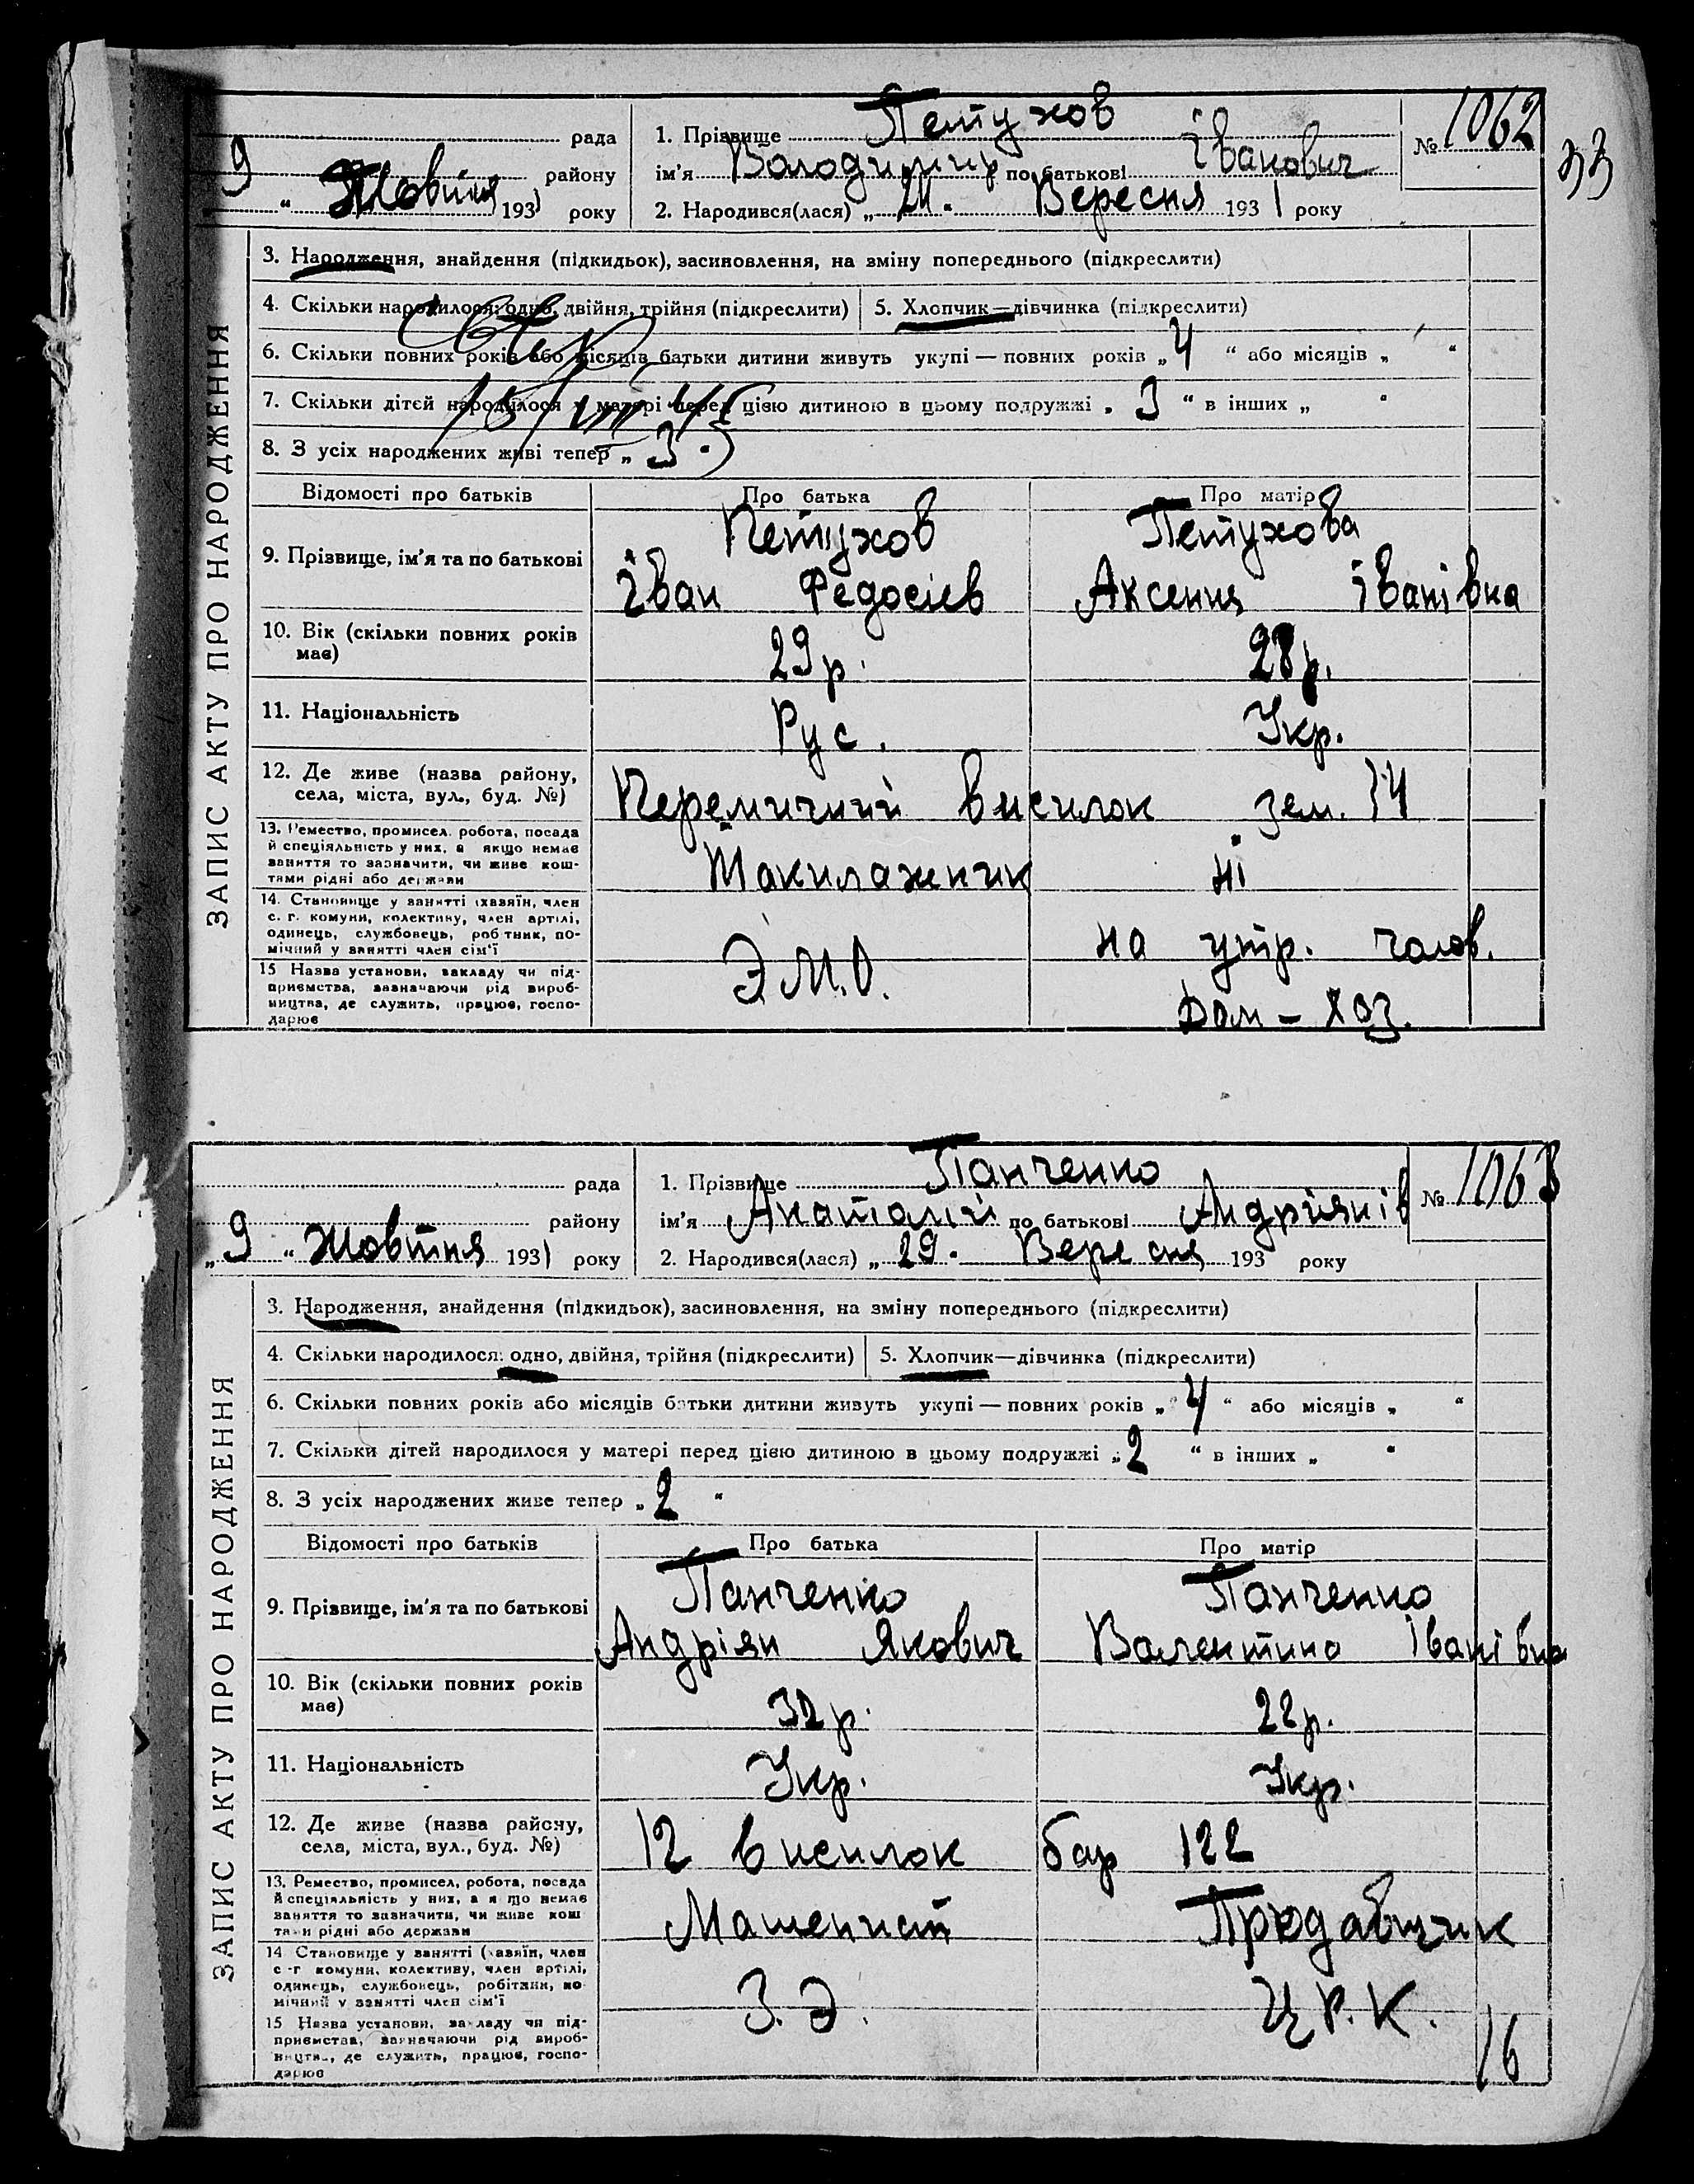 рада
району
9 " Жовтня 1931 року
1. Прізвище Петухов
ім'я Володимир по батькові Іванович
2. Народився(лася) „ 24 " Вересня 1931 року
№ 1062
33
ЗАПИС АКТУ ПРО НАРОДЖЕННЯ
3. Народження, знайдення (підкидьок), засиновлення, на зміну попереднього (підкреслити)
4. Скільки народилося: одно, двійня, трійня (підкреслити) 5. Хлопчик—дівчинка (підкреслити)
6. Скільки повних років або місяців батьки дитини живуть укупі — повних років „ 4 “ або місяців „ “
7. Скільки дітей народилося у матері перед цією дитиною в цьому подружжі „ 3 “ в інших „ “
8. З усіх народжених живі тепер „ 3 “
Відомості про батьків Про батька Про матір
9. Прізвище, ім'я та по батькові
Петухов Петухова
Іван Федосієв Аксения Іванівна
10. Вік (скільки повних років має) 29 р. 28 р.
11. Національність Рус. Укр.
12. Де живе (назва району, села, міста, вул., буд. №)
Перемичний висилок зем. 34
13. Ремество, промисел, робота, посада
й спеціяльність у них, а якщо немає
заняття то зазначити, чи живе кош-
тами рідні або держави
Такилажник ні
14. Становище у занятті (хазяїн, член
с. г. комуни, колективу, член артілі,
одинець, службовець, робітник, по-
мічний у занятті член сім'ї
на утр. чолов.
15 Назва установи, закладу чи під-
приємства, зазначаючи рід вироб-
ництва, де служить, працює, госпо-
дарює
Э.М.О. Дом – хоз.
рада
району
„ 9 “ Жовтня 1931 року
1. Прізвище Панченко
ім'я Анаталій по батькові Андріянів
2. Народився(лася) „ 29 " Вересня 193 року
№ 1063
ЗАПИС АКТУ ПРО НАРОДЖЕННЯ
3. Народження, знайдення (підкидьок), засиновлення, на зміну попереднього (підкреслити)
4. Скільки народилося: одно, двійня, трійня (підкреслити) 5. Хлопчик—дівчинка (підкреслити)
6. Скільки повних років або місяців батьки дитини живуть укупі — повних років „ 4 “ або місяців „ “
7. Скільки дітей народилося у матері перед цією дитиною в цьому подружжі „ 2 “ в інших „ “
8. З усіх народжених живе тепер „ 2 “
Відомості про батьків Про батька Про матір
9. Прізвище, ім'я та по батькові
Панченко Панченко
Андріян Якович Валентина Іванівна
10. Вік (скільки повних років має) 32 р. 22 р.
11. Національність Укр. Укр.
12. Де живе (назва району, села, міста, вул., буд. №)
12 висилок бар 122
13. Ремество, промисел, робота, посада
й спеціяльність у них, а якщо немає
заняття то зазначити, чи живе кош
тами рідні або держави
Машенист Продавщик
14 Становище у занятті (хазяїн, член
с-г комуни, колективу, член артілі,
одинець, службовець, робітник, по
мічний у занятті член сім'ї
З.Э. Ц.Р.К.
15 Назва установи, закладу чи під-
приємства, зазначаючи рід вироб-
ництва, де служить, працює, госпо-
дарює
16